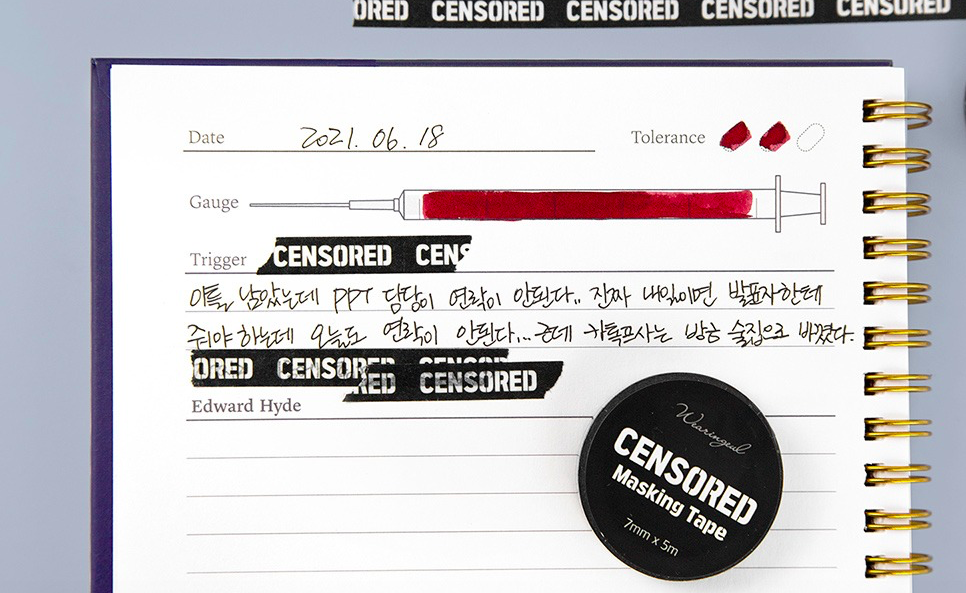 ORED CENSORED CENSORED CENSORED CENSORED
Date 2021. 06. 18 Tolerance
Gauge
Trigger CENSORED CENS
이틀 남았는데 PPT 담당이 연락이 안된다.. 진짜 내일이면 발표자한테
줘야 하는데 오늘도 연락이 안된다... 근데 카톡프사는 방금 술집으로 바꼈다.
ORED CENSORED CENSORED
RED CENSORED
Edward Hyde
Wearingeul
CENSORED
Masking Tape
7mm x 5m